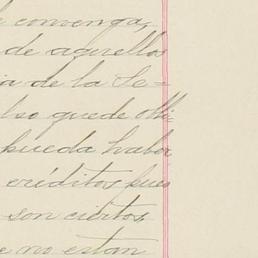 convenga,
de aquellos
ia de la Se=
lso quede obli-
pueda haber
créditos pues
son ciertos
e no estan